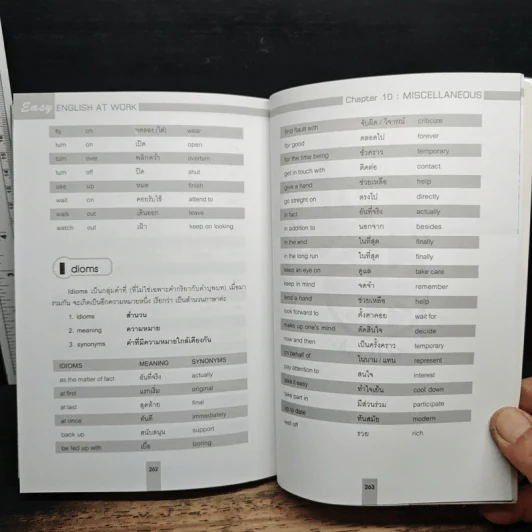 Easy ENGLISH AT WORK
try on ทดลอง (ใส่) wear
turn on เปิด open
turn over พลิกคว่ำ overturn
turn off ปิด shut
use up หมด finish
wait on คอยรับใช้ attend to
walk out เดินออก leave
watch out เฝ้า keep on looking
idioms
Idioms เป็นกลุ่มคำที่ (ที่ไม่ใช่เฉพาะคำกริยากับคำบุพบท) เมื่อมา
รวมกัน จะเกิดเป็นอีกความหมายหนึ่ง เรียกว่า เป็นสำนวนภาษาค่ะ
1. idioms สำนวน
2. meaning ความหมาย
3. synonyms คำที่มีความหมายใกล้เคียงกัน
IDIOMS MEANING SYNONYMS
as the matter of fact อันที่จริง actually
at first แรกเริ่ม original
at last สุดท้าย final
at once ทันที immediately
back up สนับสนุน support
be fed up with เบื่อ boring
262
Chapter 10 : MISCELLANEOUS
find fault with จับผิด / วิจารณ์ criticize
for good ตลอดไป forever
for the time being ชั่วคราว temporary
get in touch with ติดต่อ contact
give a hand ช่วยเหลือ help
go straight on ตรงไป directly
in fact อันที่จริง actually
in addition to นอกจาก besides
in the end ในที่สุด finally
in the long run ในที่สุด finally
keep an eye on ดูแล take care
keep in mind จดจำ remember
lend a hand ช่วยเหลือ help
look forward to ตั้งตาคอย wait for
make up one's mind ตัดสินใจ decide
now and then เป็นครั้งคราว temporary
on behalf of ในนาม / แทน represent
pay attention to สนใจ interest
take it easy ทำใจเย็น cool down
take part in มีส่วนร่วม participate
up to date ทันสมัย modern
well off รวย rich
263